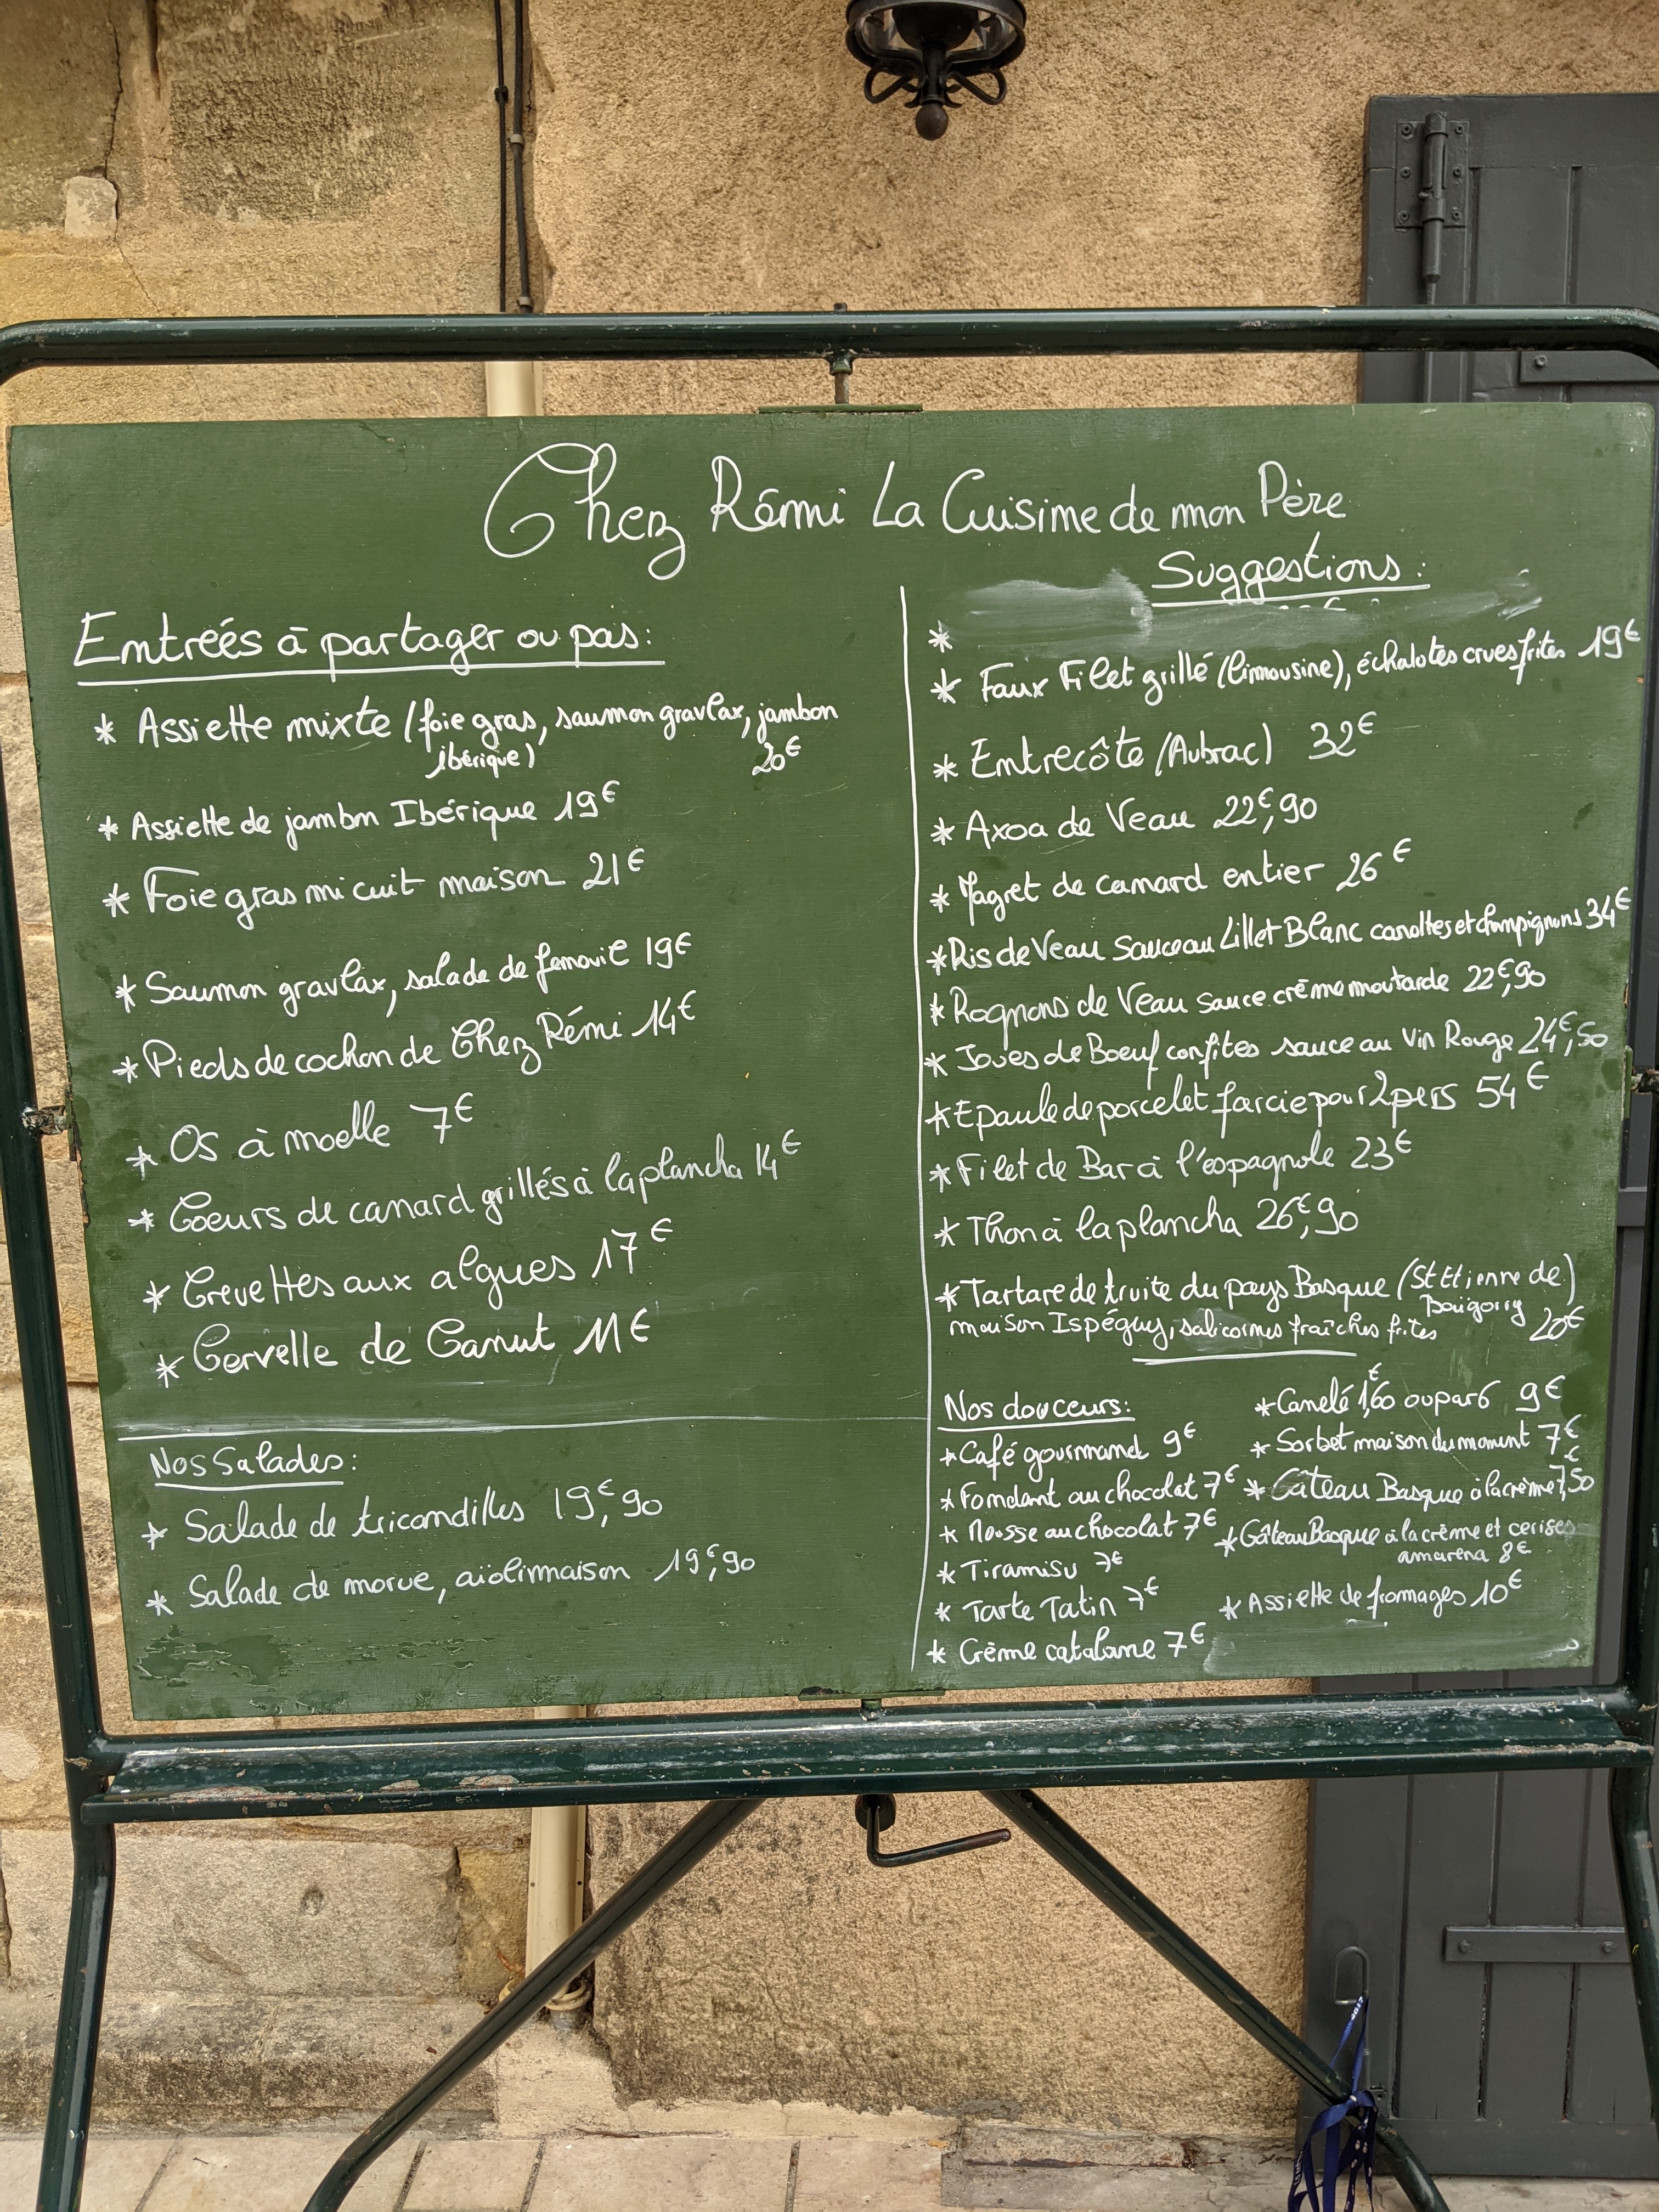 Chez Rémi La Cuisine de mon Père
Entreés à partager ou pas:
* Assiette mixte (foie gras, saumon gravlax, jambon
ibérique) 20€
* Assiette de jambon Ibérique 19€
* Foie gras mi cuit maison 21€
* Saumon gravlax, salade de fenouil 19€
* Pieds de cochon de Chez Rémi 14€
* Os à moelle 7€
* Coeurs de canard grillés à la plancha 14€
* Crevettes aux algues 17€
* Cervelle de Canut 11€
Nos Salades:
* Salade de tricandilles 19€,90
* Salade de morue, aïoli maison 19€,90
Suggestions:
*
* Faux Filet grillé (limousine), échalotes crues frites 19€
* Entrecôte (Aubrac) 32€
* Axoa de Veau 22€,90
* Magret de canard entier 26€
* Ris de Veau Sauce au Lillet Blanc carottes et champignons 34€
* Rognons de Veau sauce crème moutarde 22€,90
* Joues de Boeuf confites sauce au Vin Rouge 24€,50
* Epaule de porcelet farcie pour 2 pers 54€
* Filet de Bar à l'espagnole 23€
* Thon à la plancha 26€,90
* Tartare de truite du pays Basque (St Etienne de)
Baïgorry
maison Ispéguy, salicornes fraîches frites 20€
Nos douceurs:
* Café gourmand 9€
* Fondant au chocolat 7€
* Mousse au chocolat 7€
* Tiramisu 7€
* Tarte Tatin 7€
* Crème catalane 7€
* Canelé 1€,60 ou par 6 9€
* Sorbet maison du moment 7€
* Gâteau Basque à la crème 7€,50
* Gâteau Basque à la crème et cerises
amarena 8€
* Assiette de fromages 10€